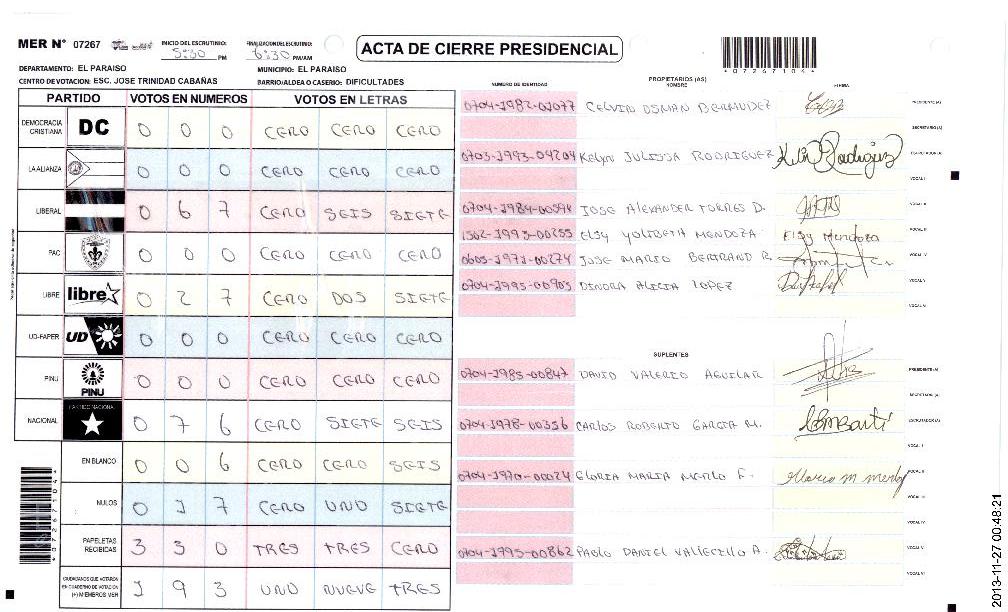 MER N° 07267
INICIO DEL ESCRUTINIO: 5:30 PM
FINALIZACION DEL ESCRUTINIO: 6:30 PM/AM
ACTA DE CIERRE PRESIDENCIAL
*07267104*
DEPARTAMENTO: EL PARAISO
MUNICIPIO: EL PARAISO
CENTRO DE VOTACION: ESC. JOSE TRINIDAD CABAÑAS
BARRIO/ALDEA O CASERIO: DIFICULTADES
PARTIDO VOTOS EN NUMEROS VOTOS EN LETRAS
DEMOCRACIA CRISTIANA DC 0 0 0 CERO CERO CERO
LA ALIANZA 0 0 0 CERO CERO CERO
LIBERAL 0 6 7 CERO SEIS SIETE
PAC 0 0 0 CERO CERO CERO
LIBRE libre 0 2 7 CERO DOS SIETE
UD-FAPER UD 0 0 0 CERO CERO CERO
PINU PINU 0 0 0 CERO CERO CERO
NACIONAL PARTIDO NACIONAL 0 7 6 CERO SIETE SEIS
EN BLANCO 0 0 6 CERO CERO SEIS
NULOS 0 1 7 CERO UNO SIETE
PAPELETAS RECIBIDAS 3 3 0 TRES TRES CERO
CIUDADANOS QUE VOTARON EN CUADERNO DE VOTACION (+) MIEMBROS MER 1 9 3 UNO NUEVE TRES
NUMERO DE IDENTIDAD
PROPIETARIOS (AS)
NOMBRE
FIRMA
0704-1982-01077 CELVIN OSMAN BERMUDEZ
PRESIDENTE (A)
SECRETARIO (A)
0703-1993-04204 Kelyn JULISSA RODRIGUEZ
ESCRUTADOR (A)
VOCAL I
0704-1984-00594 JOSE ALEXANDER TORRES D.
VOCAL II
1502-1993-00255 ELSY YOLIBETH MENDOZA Elsy Mendoza
VOCAL III
0605-1971-00274 JOSE MARIO BERTRAND R.
VOCAL IV
0704-1995-00905 DINORA ALICIA LOPEZ
VOCAL V
VOCAL VI
SUPLENTES
0704-1985-00847 DAVID VALERIO AGUILAR
PRESIDENTE (A)
SECRETARIO (A)
0704-1978-00356 CARLOS ROBERTO GARCIA M.
ESCRUTADOR (A)
VOCAL I
0704-1970-00024 GLORIA MARIA MERLO F.
VOCAL II
VOCAL III
VOCAL IV
0704-1995-00862 PABLO DANIEL VALLECILLO A.
VOCAL V
VOCAL VI
*07267104*
2013-11-27 00:48:21